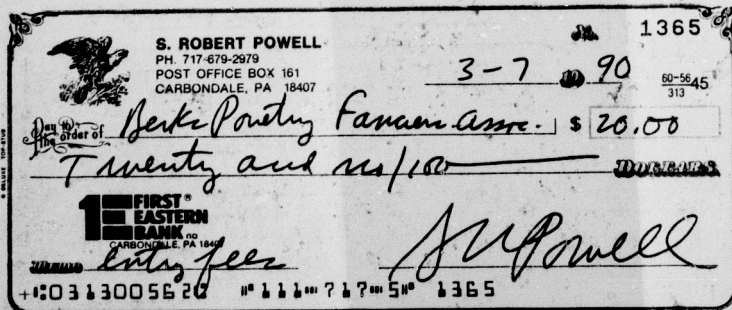 1365
S. ROBERT POWELL
PH. 717-679-2979
POST OFFICE BOX 161
CARBONDALE, PA 18407
3-7 19 90
60-56 45
313
Pay to the order of Berks Poultry Fanciers Assoc. $ 20.00
Twenty and no/100 DOLLARS
1 FIRST® EASTERN BANK na
CARBONDALE, PA 18407
MEMO entry fees
S R Powell
111 717 5 1365
© DELUXE TOP-STUB